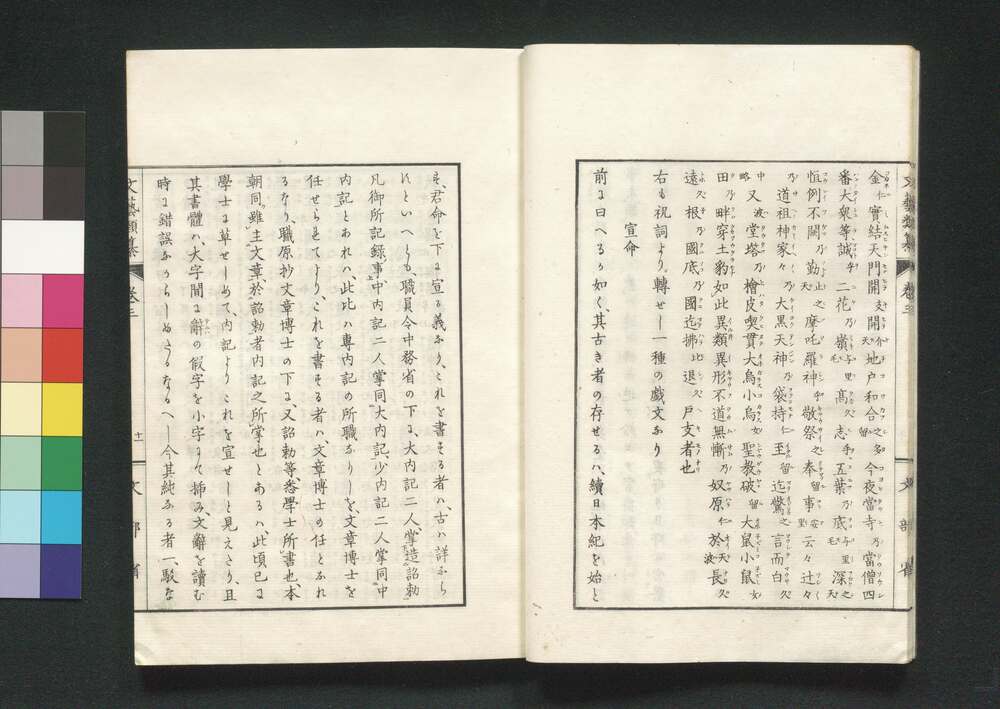 金仁實結天門開支開介地戸和合之多留今夜當寺乃當僧四
番大衆等誠乎二花乃嶺与里毛髙久志手五葉乃底与里毛深之天
恒例不闕乃勤之天摩吒羅神乎敬祭之奉留事安里云々辻々
乃道祖神家々乃大黒天神乃袋持仁至留迄驚之言而白久
中略又波堂塔乃檜皮喫貫大烏小烏如聖教破留大鼠小鼠如
田乃畔穿土豹如此異類異形不道無慚乃奴原仁於波天長久
遠久根乃國底乃國迄拂比退久戸支者也
右も祝詞より轉せし一種の戯文なり
宣命
前に曰へるか如く、其古き者の存せるハ、續日本紀を始と
す、君命を下に宣る義なり、これを書する者ハ、古ハ詳なら
すといへとも、職員令中務省の下に、大内記二人、掌造詔勅
凡御所記録事、中内記二人掌同大内記、少内記二人掌同中
内記とあれハ、此比ハ專内記の所職なりしを、文章博士を
任せられてより、これを書する者ハ、文章博士の任となれ
るなり、職原抄文章博士の下に、又詔勅等、悉學士所書也、本
朝同雖主文章於詔勅者内記之所掌也とあるハ、此頃已に
學士に草せしめて、内記よりこれを宣せしと見えたり、且
其書體ハ大字間に辭の假字を小字にて挿み、文辭を讀む
時に錯誤なからしめたるなるへし今其純なる者一、二な
文藝類纂
卷三
十一
文部省
文藝類纂
卷三
文部省